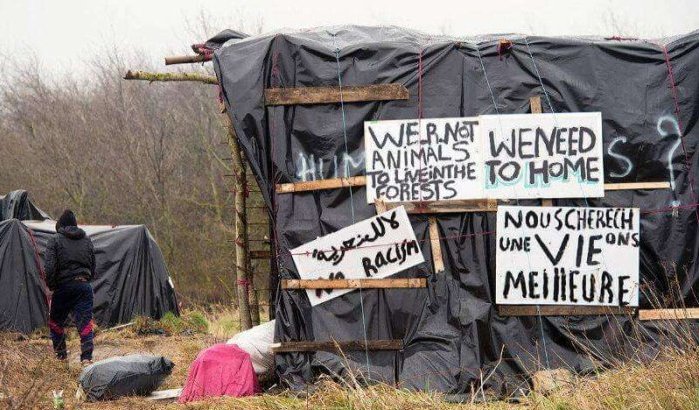 WE R NOT
ANIMALS
TO LIVE IN THE
FORESTS
WE NEED
TO HOME
HUM
S ?
لا للعنصرية
NO RACISM
NOUS CHERECH
UNE VIE ONS
MEILLEURE